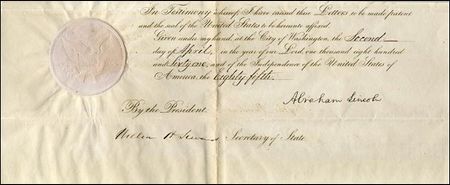 In Testimony whereof I have caused these Letters to be made patent
and the seal of the United States to be hereunto affixed.
Given under my hand, at the City of Washington, the Second
day of April, in the year of our Lord, one thousand eight hundred
and Sixty one, and of the Independence of the United States of
America, the Eighty fifth.
By the President
Abraham Lincoln
William H Seward Secretary of State